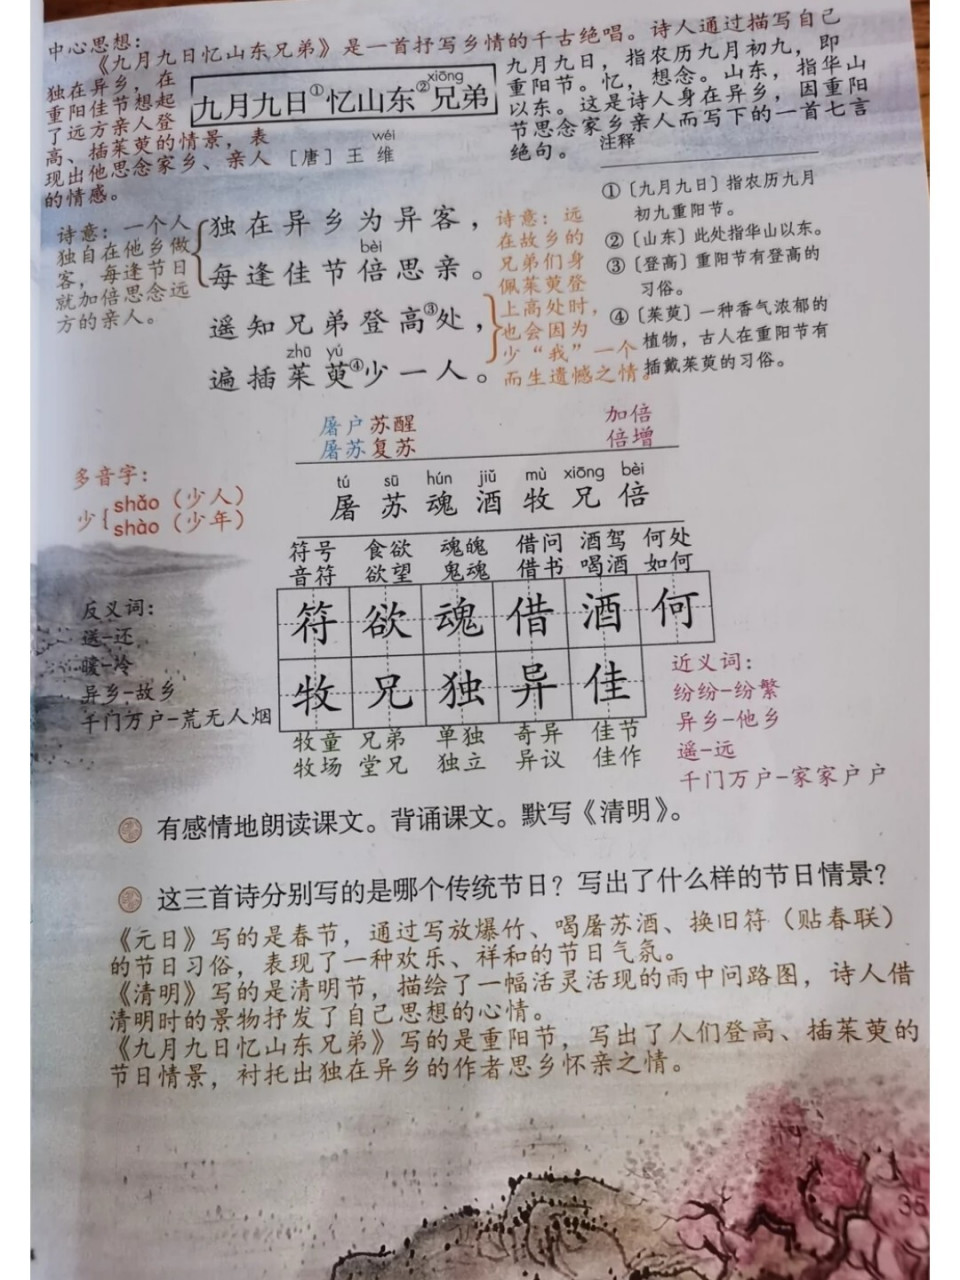 中心思想：
《九月九日忆山东兄弟》是一首抒写乡情的千古绝唱。诗人通过描写自己
独在异乡，在
重阳佳节想起
了远方亲人登
高、插茱萸的情景，表
现出他思念家乡、亲人
的情感。
xiōng
九月九日①忆山东②兄弟
wéi
［唐］王维
九月九日，指农历九月初九，即
重阳节。忆，想念。山东，指华山
以东。这是诗人身在异乡，因重阳
节思念家乡亲人而写下的一首七言
绝句。
注释
①〔九月九日〕指农历九月
初九重阳节。
②〔山东〕此处指华山以东。
③〔登高〕重阳节有登高的
习俗。
④〔茱萸〕一种香气浓郁的
植物，古人在重阳节有
插戴茱萸的习俗。
诗意：一个人
独自在他乡做
客，每逢节日
就加倍思念远
方的亲人。
独在异乡为异客，
bèi
每逢佳节倍思亲。
遥知兄弟登高③处，
zhū yú
遍插茱萸④少一人。
诗意：远
在故乡的
兄弟们身
佩茱萸登
上高处时，
也会因为
少“我”一个
而生遗憾之情。
屠户 苏醒 加倍
屠苏 复苏 倍增
多音字：
少{shǎo（少人）
shào（少年）
tú sū hún jiǔ mù xiōng bèi
屠 苏 魂 酒 牧 兄 倍
符号 食欲 魂魄 借问 酒驾 何处
音符 欲望 鬼魂 借书 喝酒 如何
符 欲 魂 借 酒 何
牧 兄 独 异 佳
牧童 兄弟 单独 奇异 佳节
牧场 堂兄 独立 异议 佳作
反义词：
送-还
暖-冷
异乡-故乡
千门万户-荒无人烟
近义词：
纷纷-纷繁
异乡-他乡
遥-远
千门万户-家家户户
有感情地朗读课文。背诵课文。默写《清明》。
这三首诗分别写的是哪个传统节日？写出了什么样的节日情景？
《元日》写的是春节，通过写放爆竹、喝屠苏酒、换旧符（贴春联）
的节日习俗，表现了一种欢乐、祥和的节日气氛。
《清明》写的是清明节，描绘了一幅活灵活现的雨中问路图，诗人借
清明时的景物抒发了自己思想的心情。
《九月九日忆山东兄弟》写的是重阳节，写出了人们登高、插茱萸的
节日情景，衬托出独在异乡的作者思乡怀亲之情。
35